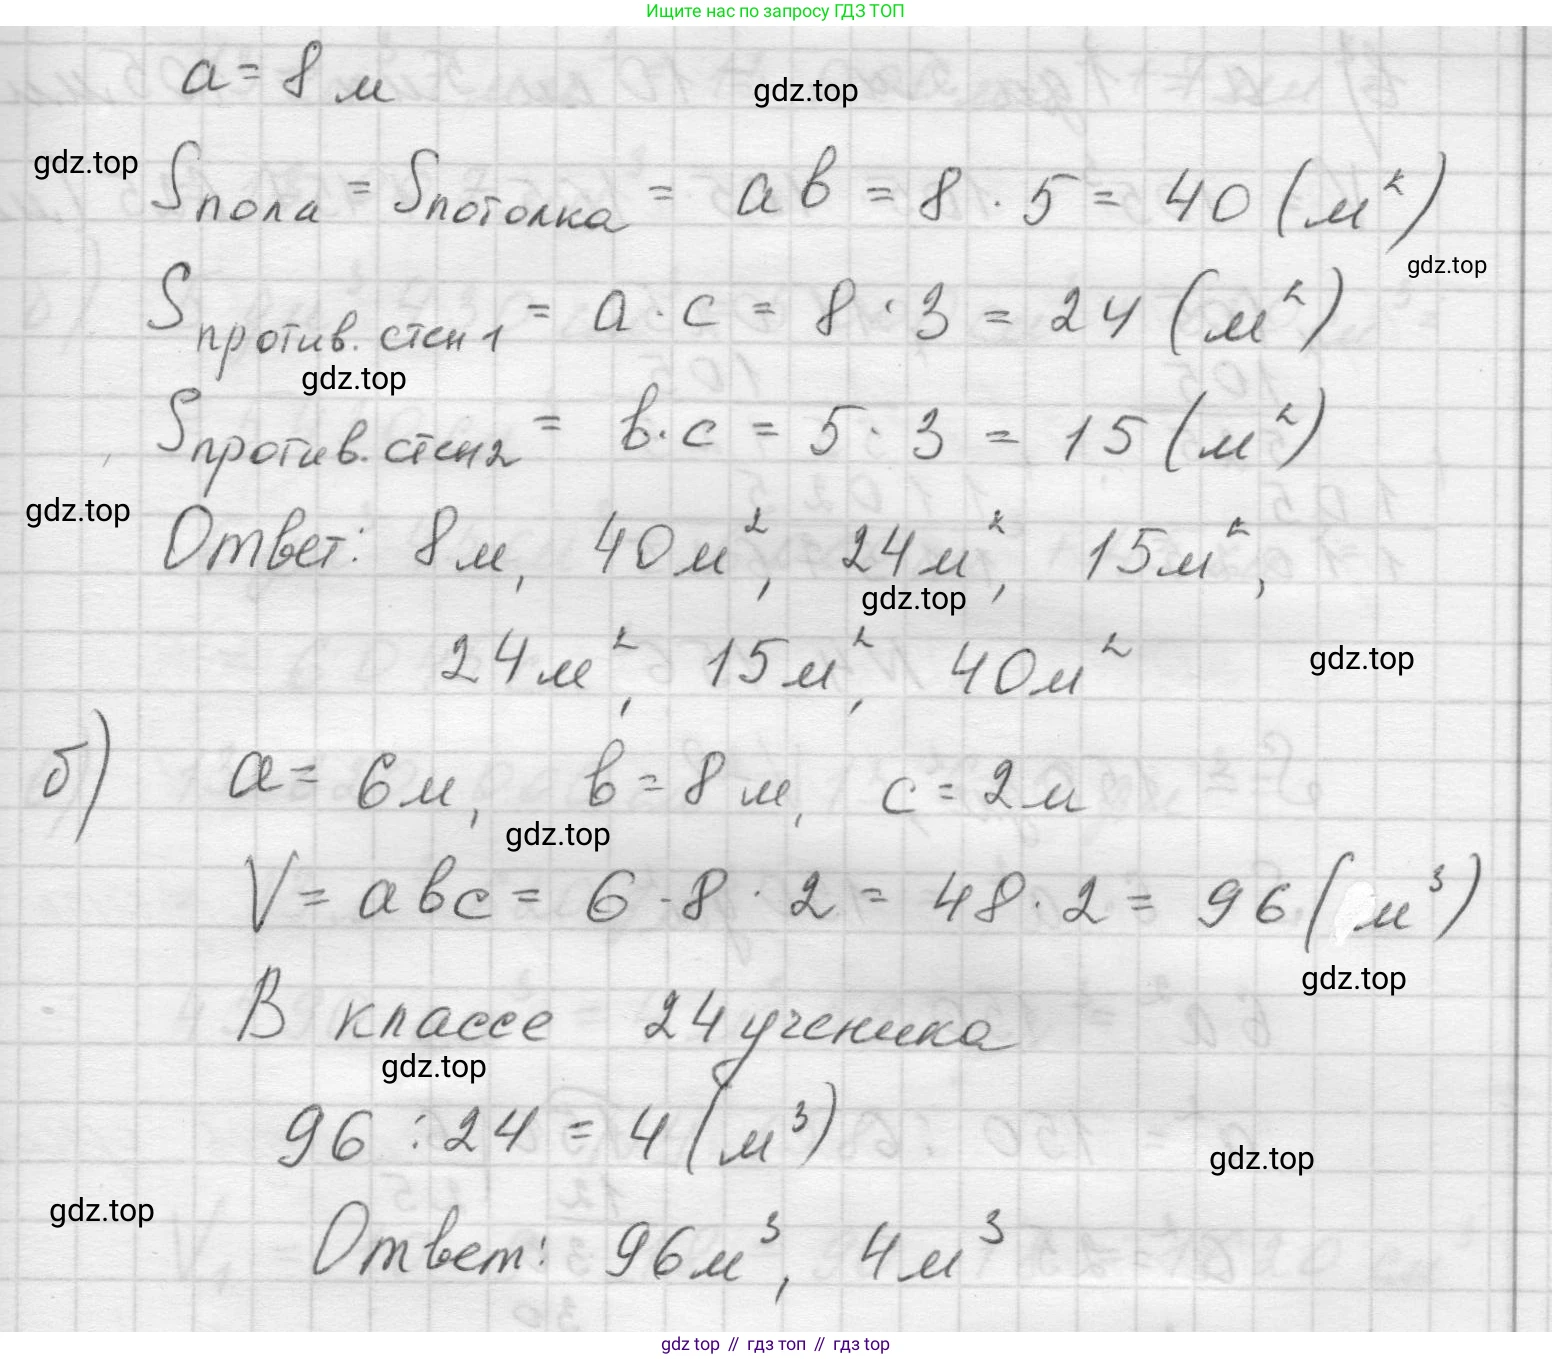 Ищите нас по запросу ГДЗ ТОП
a = 8 м
gdz.top
gdz.top
Sпола = Sпотолка = ab = 8 · 5 = 40 (м²)
gdz.top
Sпротив. стен 1 = a · c = 8 · 3 = 24 (м²)
gdz.top
Sпротив. стен 2 = b · c = 5 · 3 = 15 (м²)
gdz.top
Ответ: 8 м, 40 м², 24 м², 15 м²,
gdz.top
24 м², 15 м², 40 м²
gdz.top
б) a = 6 м, b = 8 м, c = 2 м
gdz.top
V = abc = 6 · 8 · 2 = 48 · 2 = 96 (м³)
gdz.top
В классе 24 ученика
gdz.top
96 : 24 = 4 (м³)
gdz.top
gdz.top
Ответ: 96 м³, 4 м³
gdz top // гдз топ // гдз top